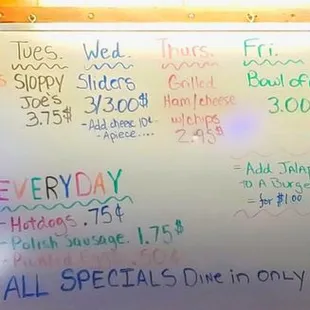 Tues.
SLOPPY
JOe's
3.75$
Wed.
Sliders
3/3.00$
-Add cheese 10¢
-Apiece....
Thurs.
Grilled
Ham/cheese
w/chips
2.95$
Fri.
Bowl of
3.00
= Add JALAP
TO A Burge
= for $1.00
EVERYDAY
- Hotdogs .75¢
- Polish Sausage. 1.75$
- Pickled Eggs .50¢
ALL SPECIALS DINE in ONLY